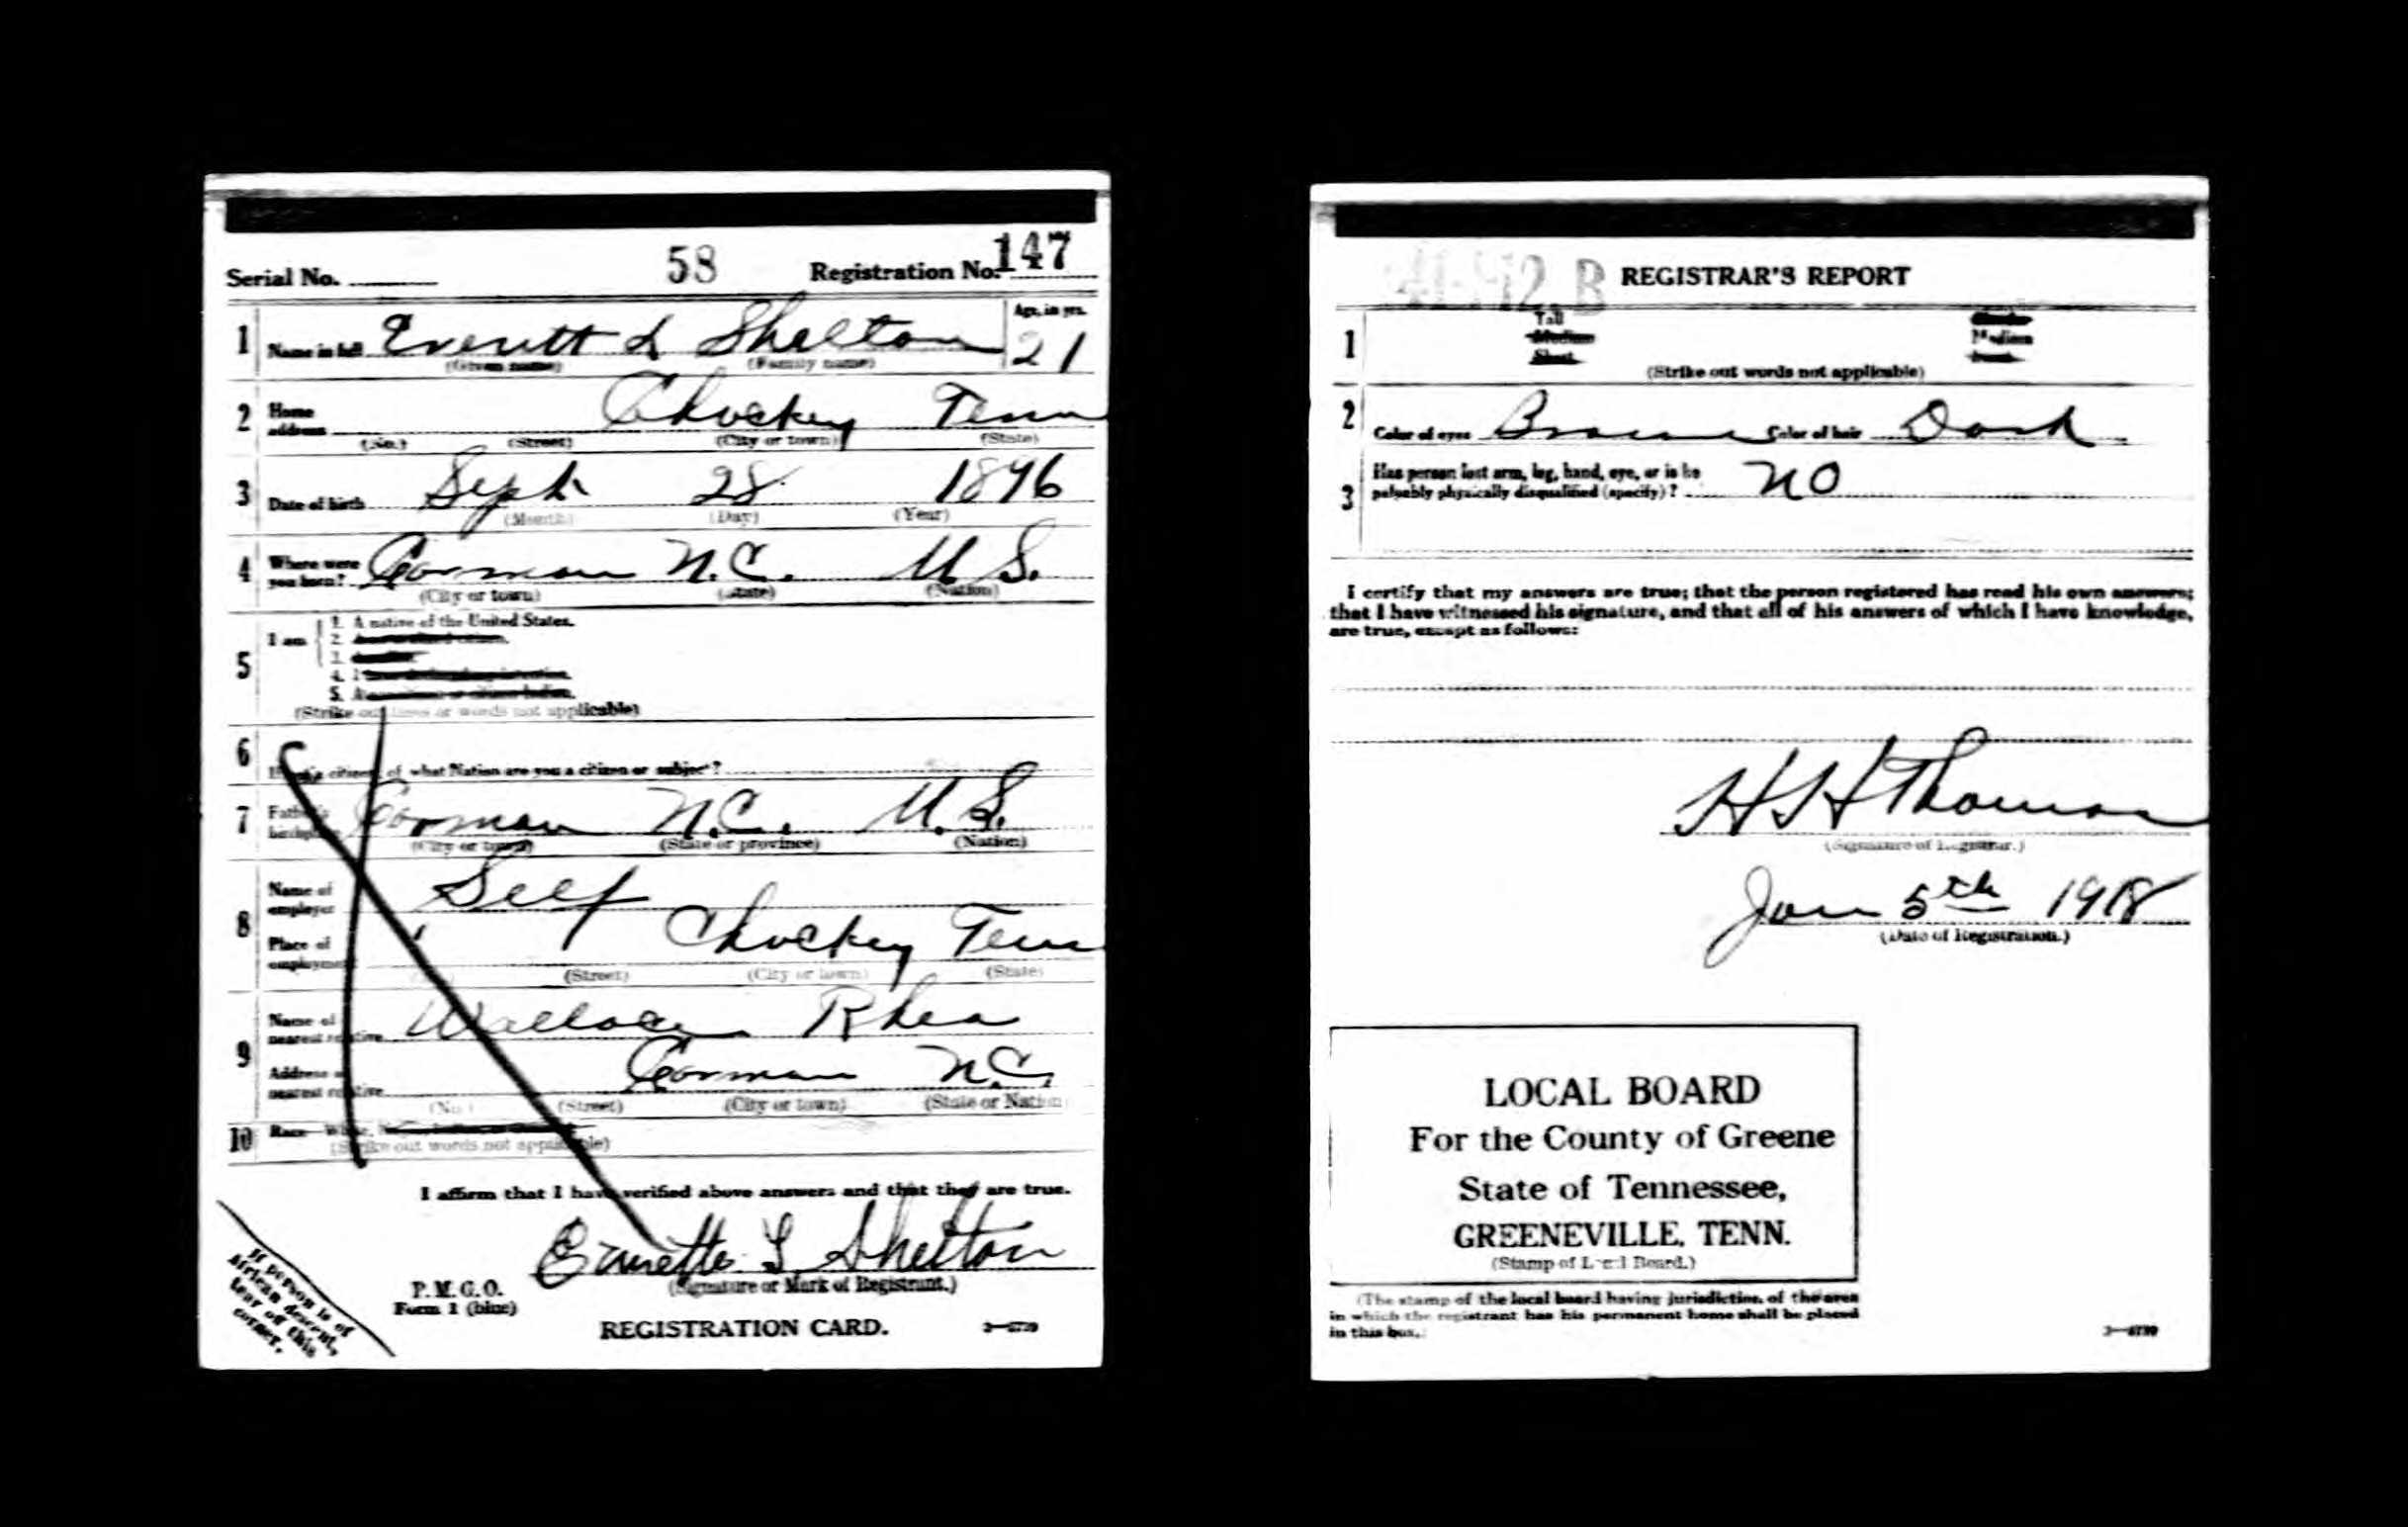 Serial No. 58 Registration No. 147
1 Name in full Everett L Shelton Age, in yrs. 21
(Given name) (Family name)
2 Home address Chuckey Tenn
(No.) (Street) (City or town) (State)
3 Date of birth Sept 28 1896
(Month) (Day) (Year)
4 Where were you born? Cormon N.C. U S.
(City or town) (State) (Nation)
5 I am 1. A native of the United States.
2.
3.
4. I
5. A
(Strike out lines or words not applicable)
6 citizen, of what Nation are you a citizen or subject?
7 Father's birthplace Cormon N.C. U.S.
(City or town) (State or province) (Nation)
8 Name of employer Self
Place of employment Chuckey Tenn
(Street) (City or town) (State)
9 Name of nearest relative Wallace Rhea
Address of nearest relative Cormon N.C.
(No.) (Street) (City or town) (State or Nation)
10 Race— White,
(Strike out words not applicable)
I affirm that I have verified above answers and that they are true.
Everette L Shelton
(Signature or Mark of Registrant.)
P. M. G. O.
Form 1 (blue)
REGISTRATION CARD.
If person is of
African descent,
tear off this
corner.
REGISTRAR'S REPORT
1 Tall
Medium Medium
Short
(Strike out words not applicable)
2 Color of eyes Brown Color of hair Dark
3 Has person lost arm, leg, hand, eye, or is he
palpably physically disqualified (specify)? NO
I certify that my answers are true; that the person registered has read his own answers;
that I have witnessed his signature, and that all of his answers of which I have knowledge,
are true, except as follows:
H H Thomas
(Signature of Registrar.)
Jun 5th 1918
(Date of Registration.)
LOCAL BOARD
For the County of Greene
State of Tennessee,
GREENEVILLE, TENN.
(Stamp of Local Board.)
(The stamp of the local board having jurisdiction of the area
in which the registrant has his permanent home shall be placed
in this box.)